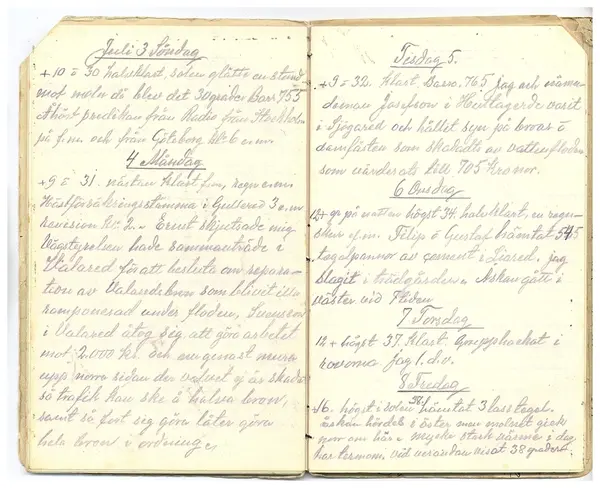 Juli 3 Söndag
+10 = 30 halvklart, solen glätte en stund
mot moln då blev det 30 grader Barr 755
Åhört predikan från Radio från Stockholm
på f.m. och från Göteborg kl. 6 e.m.
4 Måndag
+9 = 31. nästan klart f.m., regn e.m.
Hästförsäkringsstämma i Gullered 3 e.m.
revision kl. 2. Ernst skjutsade mig
Vägstyrelsen hade sammanträde i
Valared för att besluta om repara-
tion av Valaredsbron som blivit illa
ramponerad under floden, Svensson
i Valared åtog sig att göra arbetet
mot 2.000 Kr. och omgenast mura
upp norra sidan der valvet ej är skadat
så trafik kan ske å halva bron,
samt så fort sig göra låter göra
hela bron i ordning.
Tisdag 5.
+9 = 32. Klart. Barr. 765 jag och nämn-
deman Josefson i Hultagerde varit
i Sjögared och hållet syn på broar o
damfästen som skadats av vattenfloden
som värderats till 705 Kronor.
6 Onsdag
12+ gr på natten högst 34. halvklart, en regn-
skur e.m. Filip o Gustaf hämtat 545
tegelpannor av cement i Liared. jag
slagit i trädgården. Åskan gått i
väster vid Floden
7 Torsdag
12 + högst 37. Klart. Grepphackat i
rovorna jag l. d. v.
8 Fredag
16. högst i solen 38. hämtat 3 lass tegel.
åskan hördes i öster men molnet gick
norr om här. Mycke stark värme i dag
har termom. vid verandan visat 38 grader